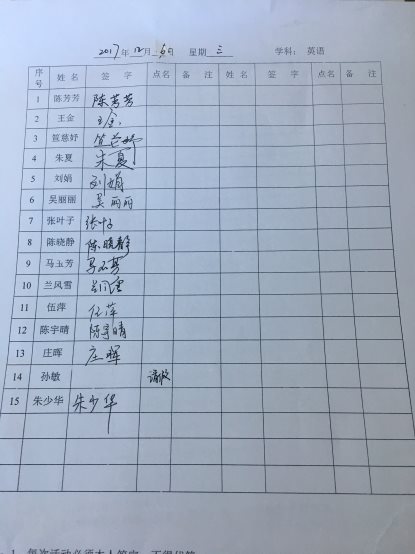 2017年12月6日 星期三 学科：英语
序号 姓名 签字 点名 备注 姓名 签字 点名 备注
1 陈芳芳 陈芳芳
2 王金 王金
3 笪慈妤 笪慈妤
4 朱夏 朱夏
5 刘娟 刘娟
6 吴丽丽 吴丽丽
7 张叶子 张叶子
8 陈晓静 陈晓静
9 马玉芳 马玉芳
10 兰风雪 兰风雪
11 伍萍 伍萍
12 陈宇晴 陈宇晴
13 庄晖 庄晖
14 孙敏 请假
15 朱少华 朱少华
1、每次活动必须本人签字，不得代签